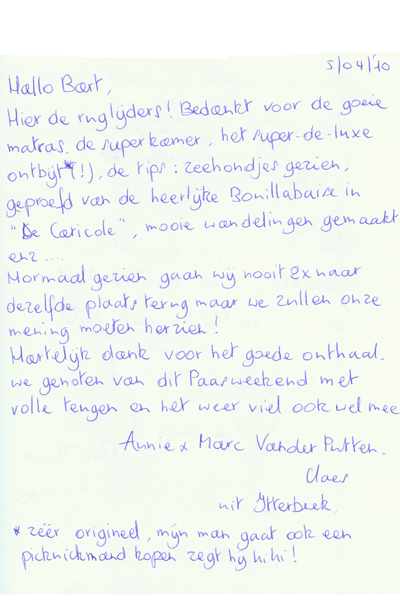 5/04/'10
Hallo Bart,
Hier de ruglijders! Bedankt voor de goeie
matras, de superkamer, het super-de-luxe
ontbijt*(!), de tips: zeehondjes gezien,
geproefd van de heerlijke Bouillabaise in
"De Caricole", mooie wandelingen gemaakt
enz....
Normaal gezien gaan wij nooit 2x naar
dezelfde plaats terug maar we zullen onze
mening moeten herzien!
Hartelijk dank voor het goede onthaal,
we genoten van dit Paasweekend met
volle teugen en het weer viel ook wel mee
Annie & Marc Vander Putten.
Claes
uit Itterbeek.
* zéér origineel, mijn man gaat ook een
picknickmand kopen zegt hij hihi!